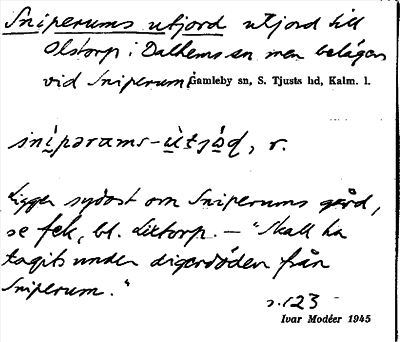 Sniperums utjord utjord till
Olstorp i Dalhems sn men belägen
vid Sniperum. Gamleby sn, S. Tjusts hd, Kalm. l.
snìpərams-ùtjo̱ḍ, r.
Ligger sydost om Sniperums gård,
se fek. bl. Listorp. – "Skall ha
tagits under digerdöden från
Sniperum."
s. 123
Ivar Modéer 1945